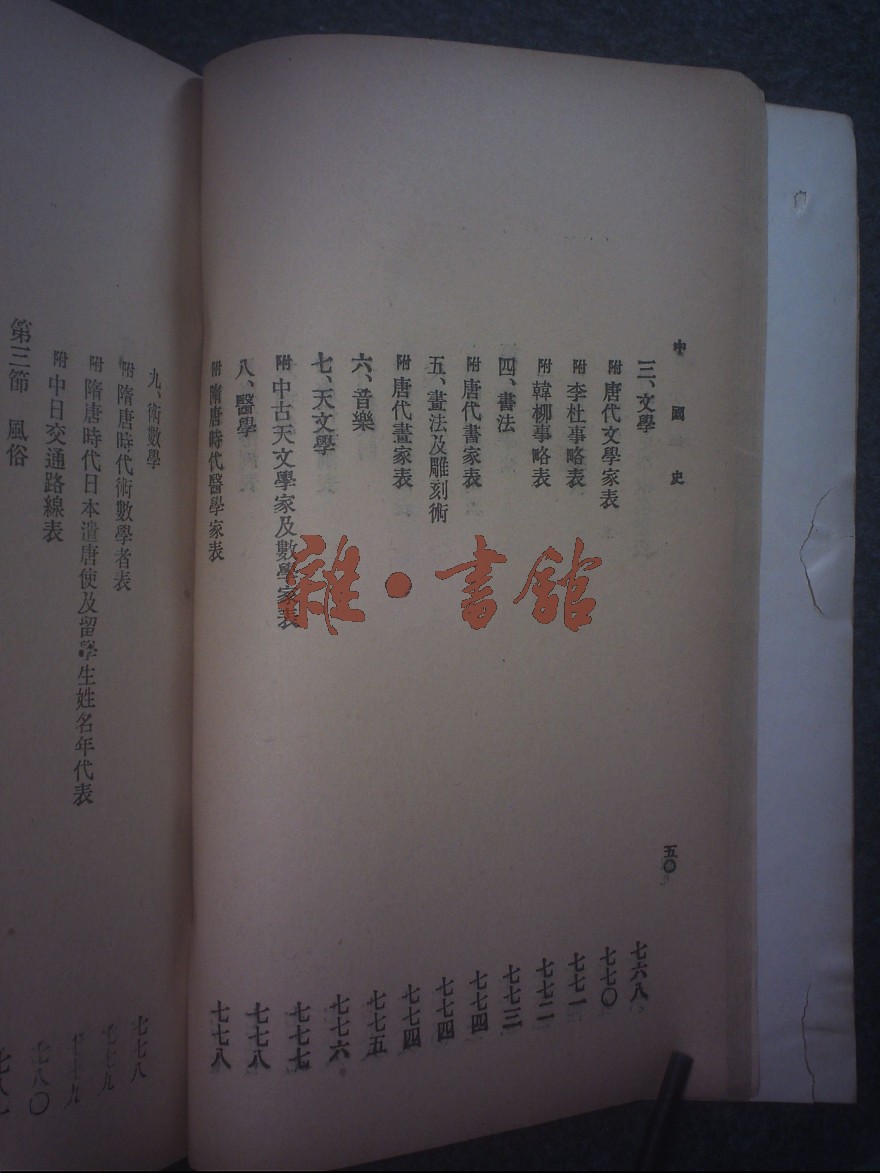 中國史
五〇
三、文學 七六八
附 唐代文學家表 七七〇
附 李杜事略表 七七一
附 韓柳事略表 七七二
四、書法 七七三
附 唐代書家表 七七四
五、畫法及雕刻術 七七四
附 唐代畫家表 七七四
六、音樂 七七五
七、天文學 七七六
附 中古天文學家及數學家表 七七七
八、醫學 七七八
附 隋唐時代醫學家表 七七八
九、術數學 七七八
附 隋唐時代術數學者表 七七九
附 隋唐時代日本遣唐使及留學生姓名年代表 七七九
附 中日交通路線表 七八〇
第三節 風俗
雜·書館